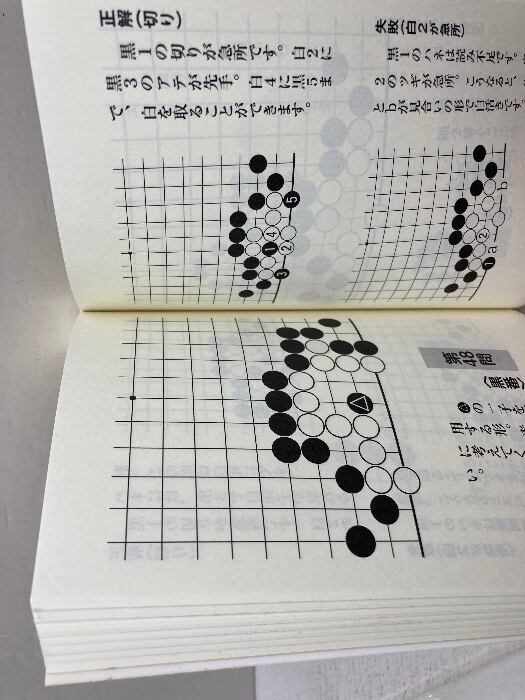 正解(切り)
黒1の切りが急所です。白2に
黒3のアテが先手。白4に黒5ま
で、白を取ることができます。
5
4
1
2
3
失敗(白2が急所)
黒1のハネは読み不足です。
2のツギが急所。こうなると、
とbが見合いの形で白活きです。
b
2
a
1
第48問
(黒番)
の一子を
用する形。
に考えてく
い。